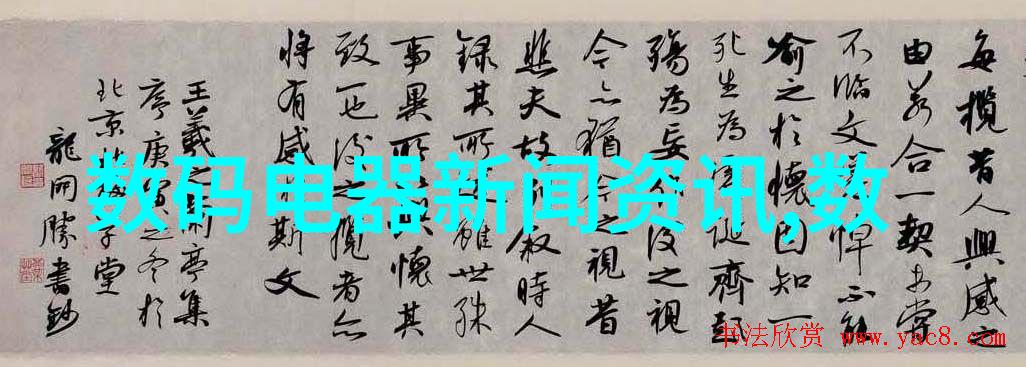 每攬昔人興感之
由若合一契未嘗
不臨文嗟悼不能
喻之於懷固知一
死生為虛誕齊彭
殤為妄作後之視
今亦猶今之視昔
悲夫故列叙時人
錄其所述雖世殊
事異所以興懷其
致一也後之攬者亦
將有感於斯文
王羲之蘭亭集
序庚寅之冬於
北京子堂
龍開勝書鈔
数码电器新闻资讯,数
书法欣赏
www.yac8.com